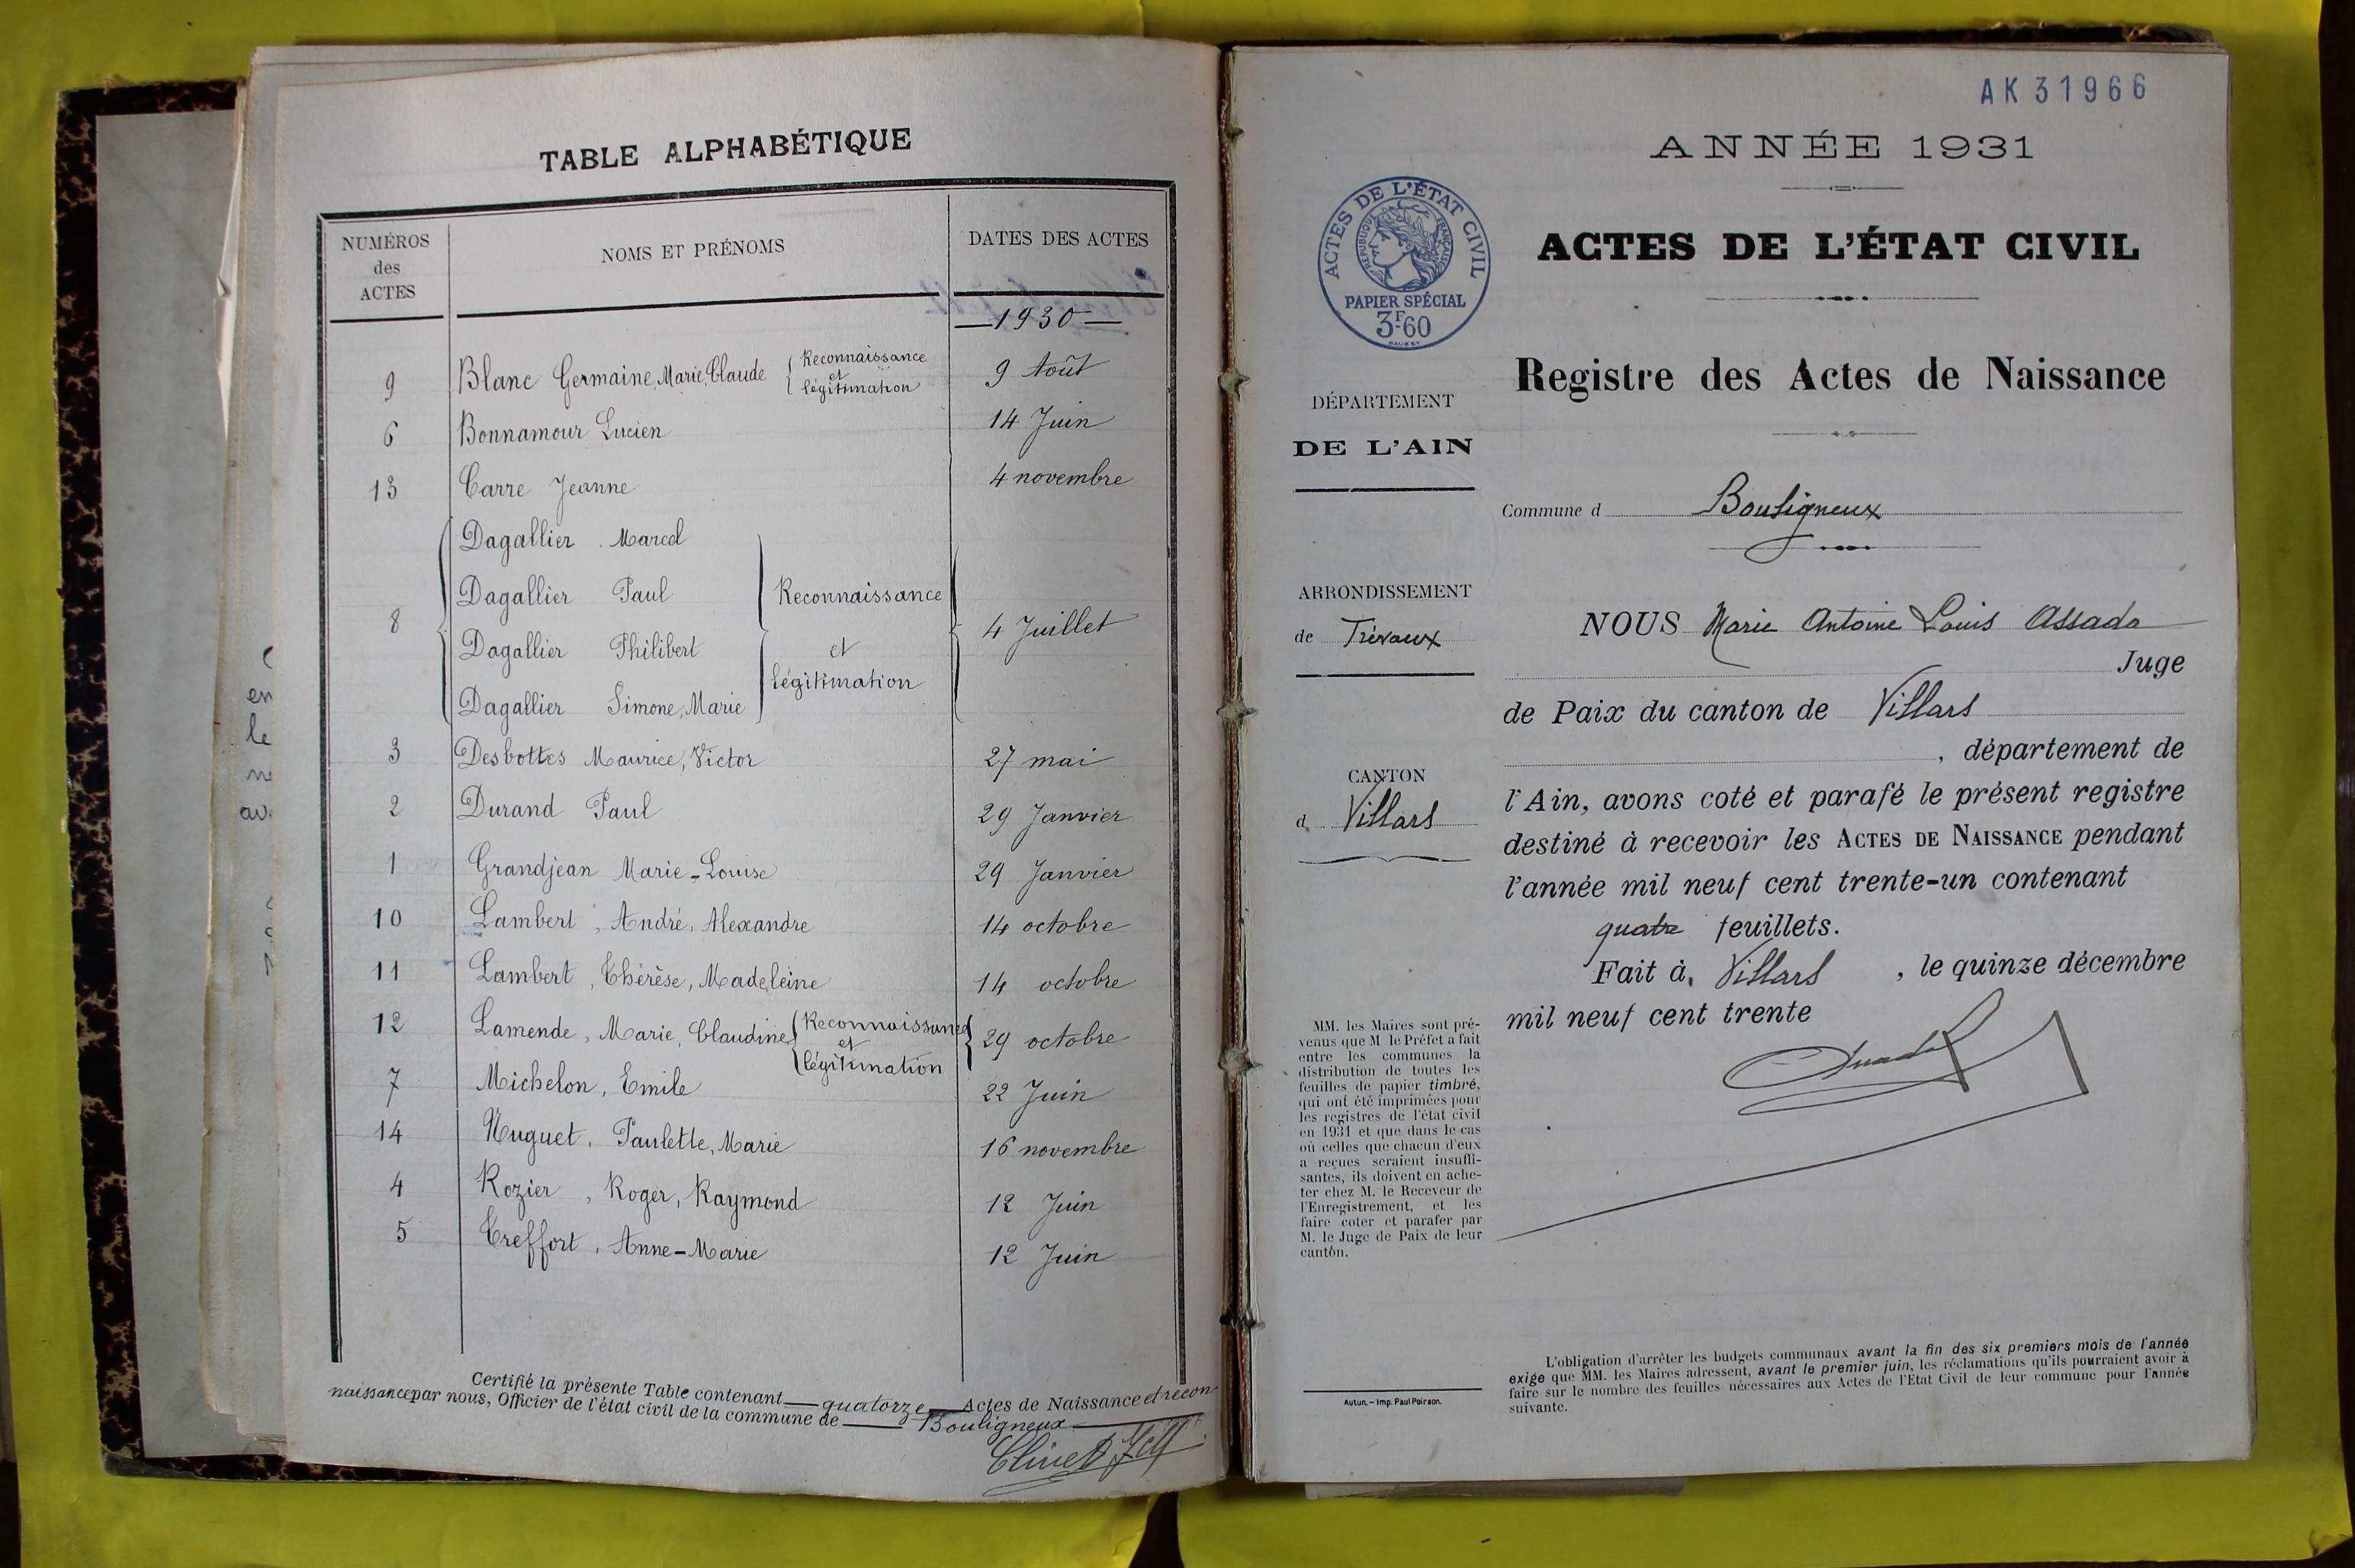 TABLE ALPHABÉTIQUE
NUMÉROS
des
ACTES
NOMS ET PRÉNOMS
DATES DES ACTES
—1930—
9 Blanc Germaine, Marie, Claude Reconnaissance et légitimation 9 Août
6 Bonnamour Lucien 14 Juin
13 Carre Jeanne 4 novembre
Dagallier Marcel
Dagallier Paul Reconnaissance
8 4 Juillet
Dagallier Philibert et
légitimation
Dagallier Simone, Marie
3 Desbottes Maurice, Victor 27 mai
2 Durand Paul 29 Janvier
1 Grandjean Marie-Louise 29 Janvier
10 Lambert, André, Alexandre 14 octobre
11 Lambert, Thérèse, Madeleine 14 octobre
12 Lamende, Marie, Claudine Reconnaissance et légitimation 29 octobre
7 Michelon, Emile 22 Juin
14 Nuguet, Paulette, Marie 16 novembre
4 Rozier, Roger, Raymond 12 Juin
5 Treffort, Anne-Marie 12 Juin
Certifié la présente Table contenant quatorze Actes de Naissance et recon
naissance par nous, Officier de l'état civil de la commune de Bouligneux
en
le
AK 31966
ANNÉE 1931
ACTES DE L'ÉTAT CIVIL
ACTES DE L'ÉTAT CIVIL
RÉPUBLIQUE FRANÇAISE
PAPIER SPÉCIAL
3F60
Registre des Actes de Naissance
DÉPARTEMENT
DE L'AIN
Commune d Bouligneux
ARRONDISSEMENT
de Trévoux
CANTON
d Villars
NOUS Marie Antoine Louis Assada
Juge
de Paix du canton de Villars
, département de
l'Ain, avons coté et parafé le présent registre
destiné à recevoir les ACTES DE NAISSANCE pendant
l'année mil neuf cent trente-un contenant
quatre feuillets.
Fait à, Villars, le quinze décembre
mil neuf cent trente
MM. les Maires sont pré-
venus que M le Préfet a fait
entre les communes la
distribution de toutes les
feuilles de papier timbré,
qui ont été imprimées pour
les registres de l'état civil
en 1931 et que dans le cas
où celles que chacun d'eux
a reçues seraient insuffi-
santes, ils doivent en ache-
ter chez M. le Receveur de
l'Enregistrement, et les
faire coter et parafer par
M. le Juge de Paix de leur
canton.
Autun. – Imp. Paul Poirson.
L'obligation d'arrêter les budgets communaux avant la fin des six premiers mois de l'année
exige que MM. les Maires adressent, avant le premier juin, les réclamations qu'ils pourraient avoir à
faire sur le nombre des feuilles nécessaires aux Actes de l'Etat Civil de leur commune pour l'année
suivante.